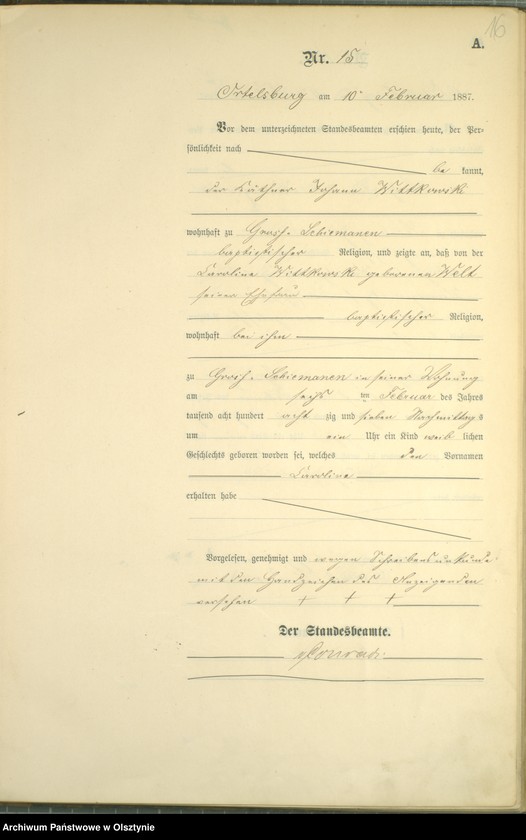 16
A.
Nr. 15
Ortelsburg am 10. Februar 1887.
Vor dem unterzeichneten Standesbeamten erschien heute, der Per-
sönlichkeit nach
be kannt,
der Käthner Johann Wittkowski
wohnhaft zu Groß-Schiemanen
baptistischer Religion, und zeigte an, daß von der
Caroline Wittkowski geborenen Welt
seiner Ehefrau
baptistischer Religion,
wohnhaft bei ihm
zu Groß-Schiemanen in seiner Wohnung
am sechs ten Februar des Jahres
tausend acht hundert acht zig und sieben Nachmittags
um ein Uhr ein Kind weib lichen
Geschlechts geboren worden sei, welches den Vornamen
Caroline
erhalten habe
Vorgelesen, genehmigt und wegen Schreibensunkunde
mit dem Handzeichen des Anzeigenden
versehen + + +
Der Standesbeamte.
Archiwum Państwowe w Olsztynie